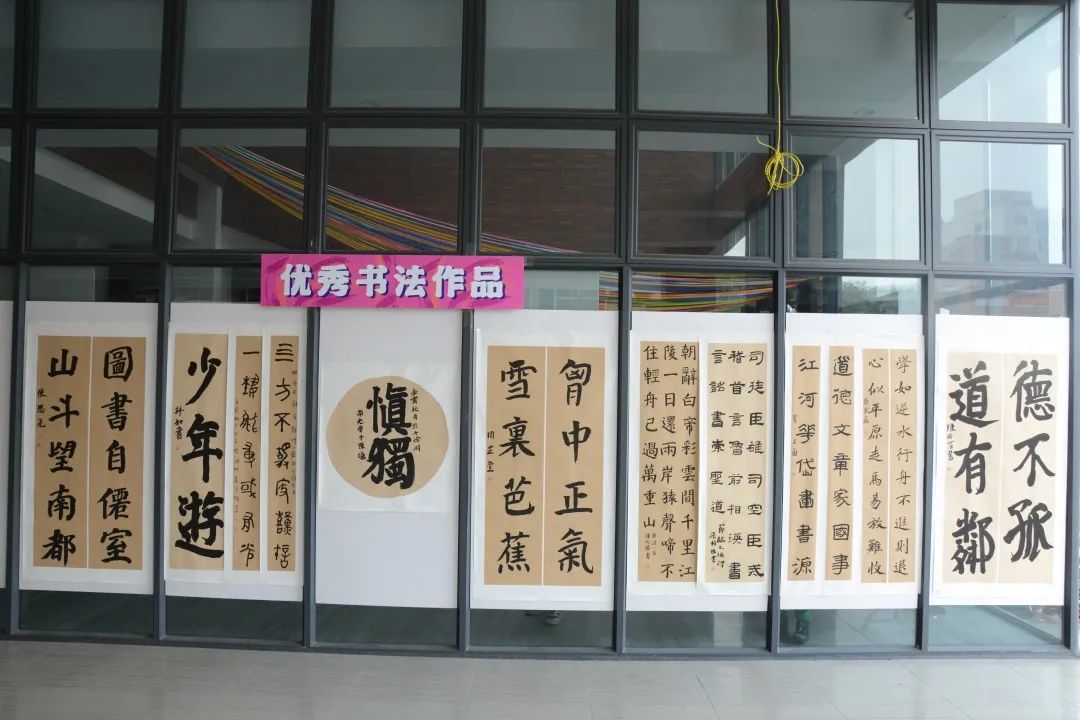 优秀书法作品
圖書自僊室
山斗望南都
少年遊
慎獨
胷中正氣
雪裏芭蕉
司徒臣雄司空臣戒
稽首言魯前相瑛書
言詔書崇聖道
朝辭白帝彩雲間千里江
陵一日還兩岸猿聲啼不
住輕舟已過萬重山
學如逆水行舟不進則退
心似平原走馬易放難收
道德文章家國事
江河華岱畫書源
德不孤
道有鄰